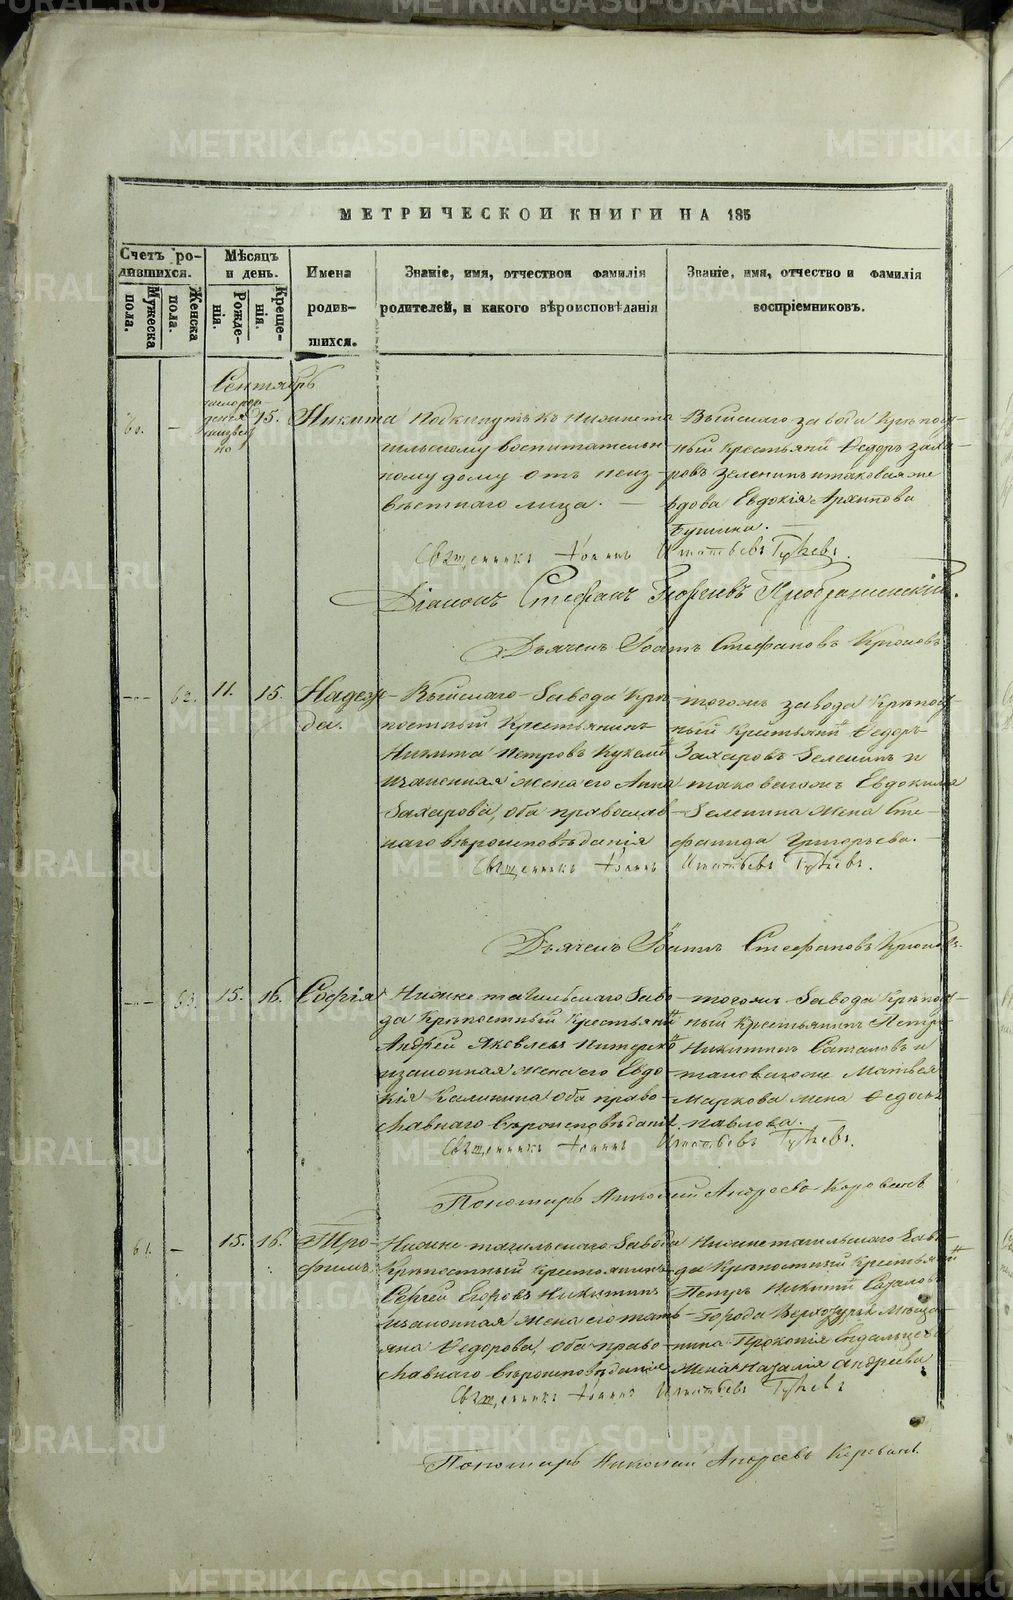 МЕТРИЧЕСКОЙ КНИГИ НА 185
Счетъ ро-
дившихся.
Мужеска
пола.
Женска
пола.
Мѣсяцъ
и день.
Рожде-
нія.
Креще-
нія.
Имена
родив-
шихся.
Званіе, имя, отчествои фамилія
родителей, и какого вѣроисповѣданія
Званіе, имя, отчество и фамилія
воспріемниковъ.
Сентябрь
60. — 15. Никита
Подкинутъ къ Нижнета
гильскому воспитательн
ному дому отъ неиз
вѣстнаго лица. —
Выйскаго завода крѣпост
ный крестьянинъ Ѳедоръ Заха
ровъ Зеленинъ и таковая же
вдова Евдокія Архипова
Священникъ Іоаннъ Игнатьевъ
Діаконъ Стефанъ Георгіевъ Преображенскій.
Дьячекъ Іоаннъ Стефановъ Крюковъ
— 62. 11. 15. Надеж-
да.
Выйскаго Завода Крѣ-
постный Крестьянинъ
Никита Петровъ
и законная жена его Анна
Захарова, оба православ
наго вѣроисповѣданія
тогожъ завода Крѣпост
ный Крестьянинъ Ѳедоръ
Захаровъ Зеленинъ и
таковагожъ Евдокима
Зеленина жена Сте-
фанида Григорьева. —
Священникъ Іоаннъ Игнатьевъ
Дьячекъ Іоаннъ Стефановъ Крюковъ.
— 63. 15. 16. Софія
Нижне тагильскаго Заво
да Крѣпостный Крестьянинъ
Андрей Яковлевъ
и законная жена его Евдо
кія Калинина оба право-
славнаго вѣроисповѣданія
тогожъ Завода Крѣпост
ный Крестьянинъ Петръ
Никитинъ и
таковагоже Матвея
Маркова жена Ѳедосья
Павлова.
Священникъ Іоаннъ Игнатьевъ
Пономарь Николай Андреевъ
61. — 15. 16. Тро-
фимъ
Нижне-тагильскаго Завода
Крѣпостный крестьянинъ
Сергей Егоровъ Никитинъ
и законная жена его Тать-
яна Ѳедорова, оба право-
славнаго вѣроисповѣданія
Нижнетагильскаго Заво-
да Крѣпостный Крестьянинъ
Петръ Никитинъ
Города Верхотурья Мѣща
нина Прокопія
жена Наталія Андреева
Священникъ Іоаннъ Игнатьевъ
Пономарь Николай Андреевъ
METRIKI.GASO-URAL.RU